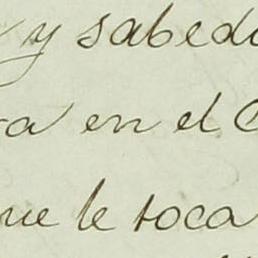 y sabed
ra en el C
que le toca